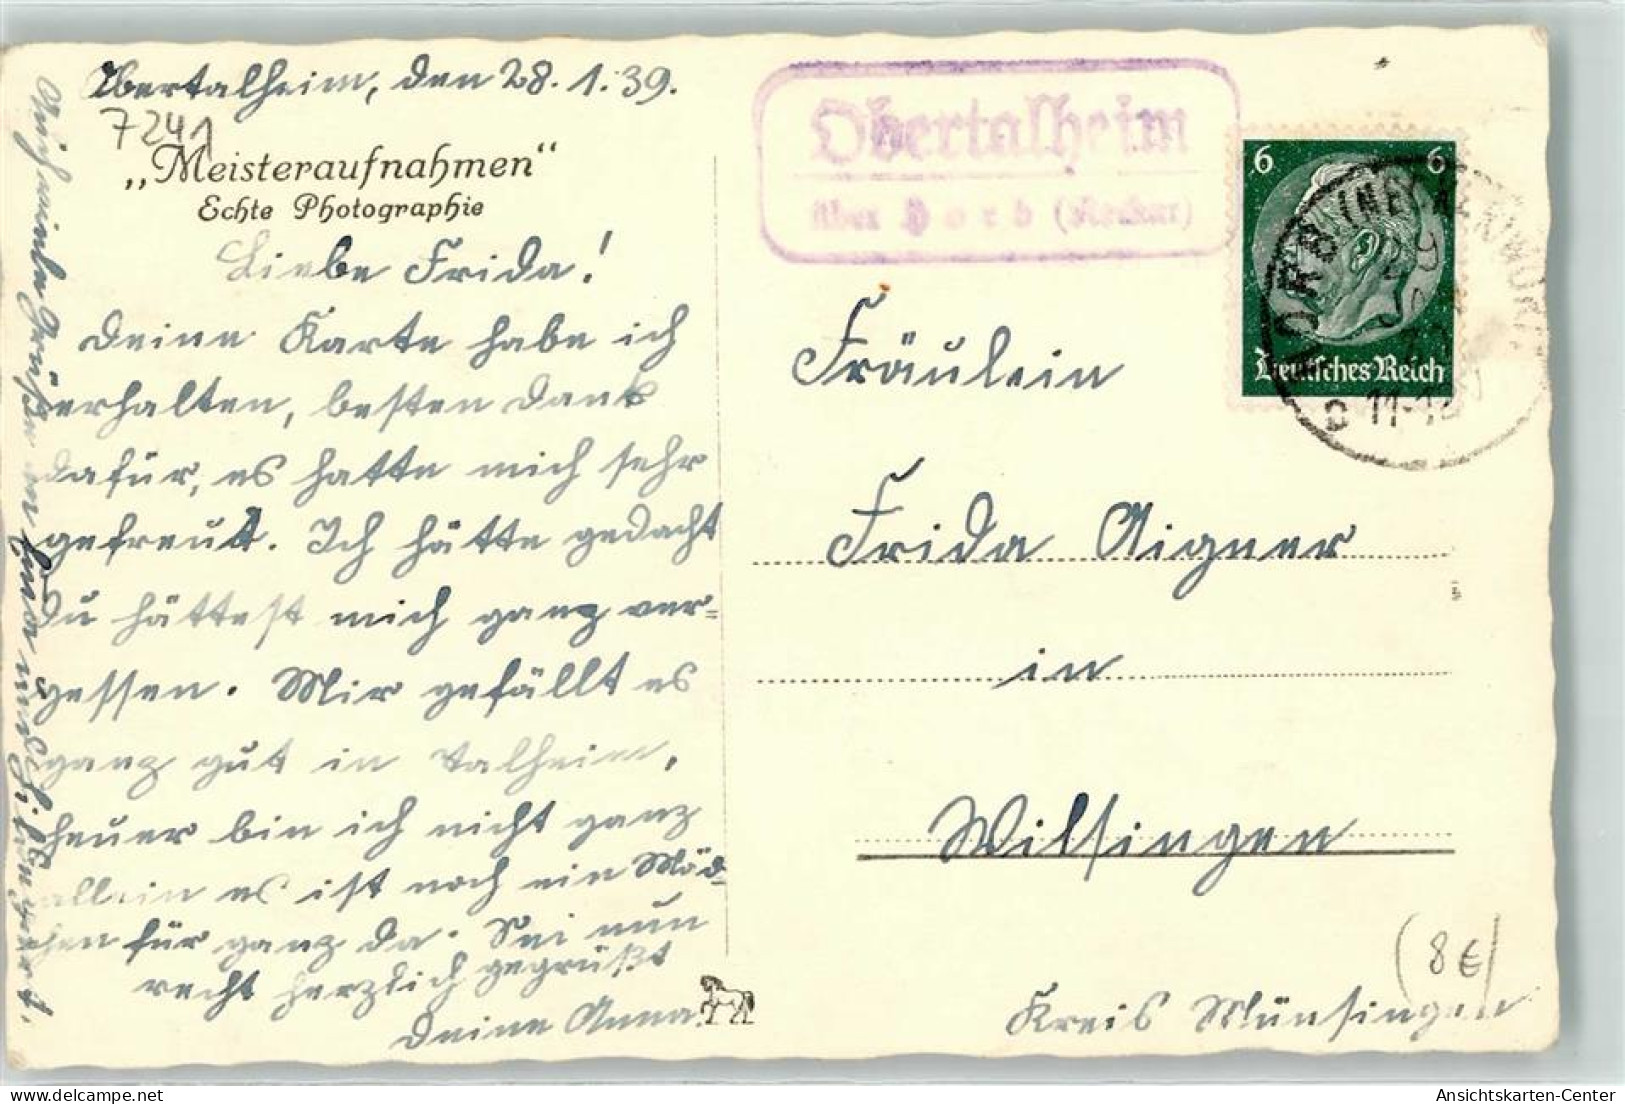 Obertalheim, den 28.1.39.
7241
„Meisteraufnahmen“
Echte Photographie
Liebe Frida!
Deine Karte habe ich
erhalten, besten Dank
dafür, es hatte mich sehr
gefreut. Ich hätte gedacht
Du hättest mich ganz ver=
gessen. Mir gefällt es
ganz gut in Talheim,
heuer bin ich nicht ganz
allein es ist noch ein Mäd=
chen für ganz da. Sei nun
recht herzlich gegrüßt
Deine Anna.
Auch meine Grüße an
Obertalheim
über Horb (Neckar)
6 6
Deutsches Reich
HORB (NECKAR)
11-12
Fräulein
Frida Aigner
in
Wilsingen
Kreis Münsingen
(8 €)
Ansichtskarten-Center